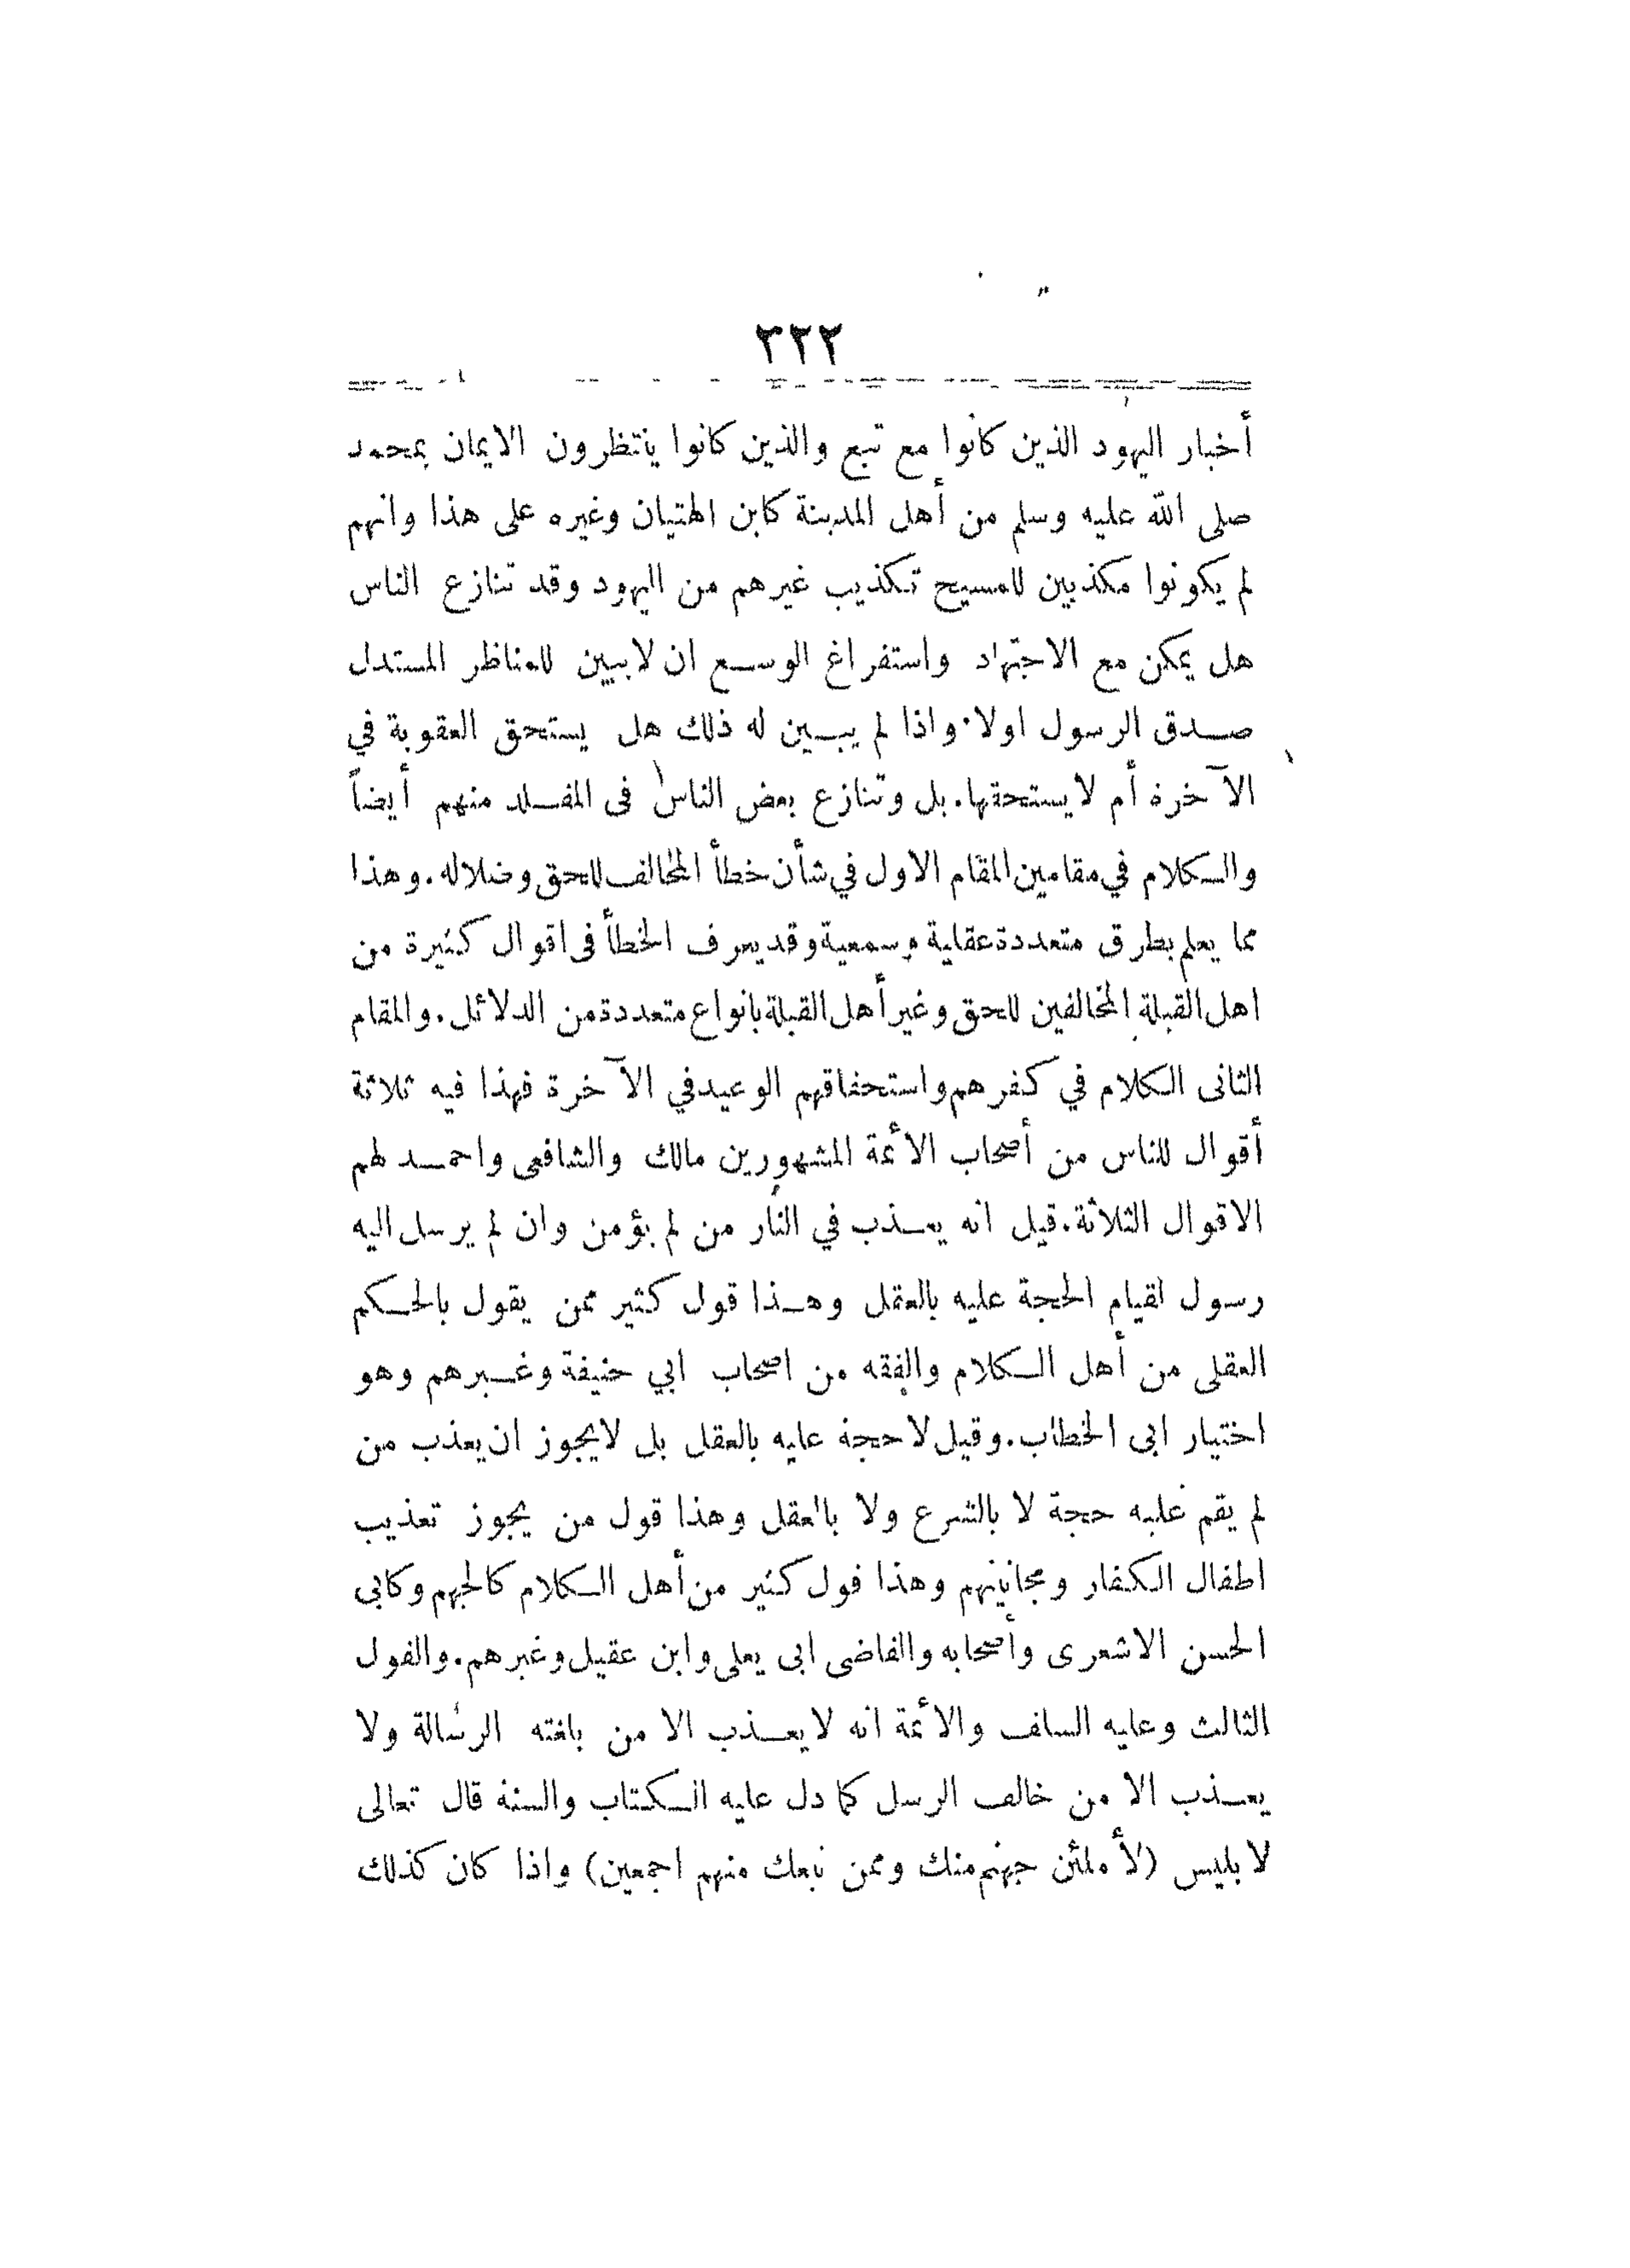 ٣٢٢
أخبار اليهود الذين كانوا مع تبع والذين كانوا ينتظرون الايمان بمحمد
صلى الله عليه وسلم من أهل المدينة كابن الهتيان وغيره على هذا وانهم
لم يكونوا مكذبين للمسيح تكذيب غيرهم من اليهود وقد تنازع الناس
هل يمكن مع الاجتهاد واستفراغ الوسع ان لايبين للمناظر المستدل
صدق الرسول اولا. واذا لم يبين له ذلك هل يستحق العقوبة في
الآخرة أم لا يستحقها. بل وتنازع بعض الناس فى المقلد منهم أيضاً
والكلام في مقامين المقام الاول في شأن خطأ المخالف للحق وضلاله. وهذا
مما يعلم بطرق متعددة عقلية وسمعية وقد يعرف الخطأ فى اقوال كثيرة من
اهل القبلة المخالفين للحق وغير أهل القبلة بانواع متعددة من الدلائل. والمقام
الثانى الكلام في كفرهم واستحقاقهم الوعيد في الآخرة فهذا فيه ثلاثة
أقوال للناس من أصحاب الأئمة المشهورين مالك والشافعى واحمد لهم
الاقوال الثلاثة. قيل انه يعذب في النار من لم يؤمن وان لم يرسل اليه
رسول لقيام الحجة عليه بالعقل وهذا قول كثير ممن يقول بالحكم
العقلى من أهل الكلام والفقه من اصحاب ابي حنيفة وغيرهم وهو
اختيار ابى الخطاب. وقيل لا حجة عليه بالعقل بل لايجوز ان يعذب من
لم يقم عليه حجة لا بالشرع ولا بالعقل وهذا قول من يجوز تعذيب
اطفال الكفار ومجانينهم وهذا قول كثير من أهل الكلام كالجهم وكابى
الحسن الاشعرى وأصحابه والقاضى ابى يعلى وابن عقيل وغيرهم. والقول
الثالث وعليه السلف والأئمة انه لا يعذب الا من بلغته الرسالة ولا
يعذب الا من خالف الرسل كما دل عليه الكتاب والسنة قال تعالى
لابليس (لأملئن جهنم منك وممن تبعك منهم اجمعين) واذا كان كذلك